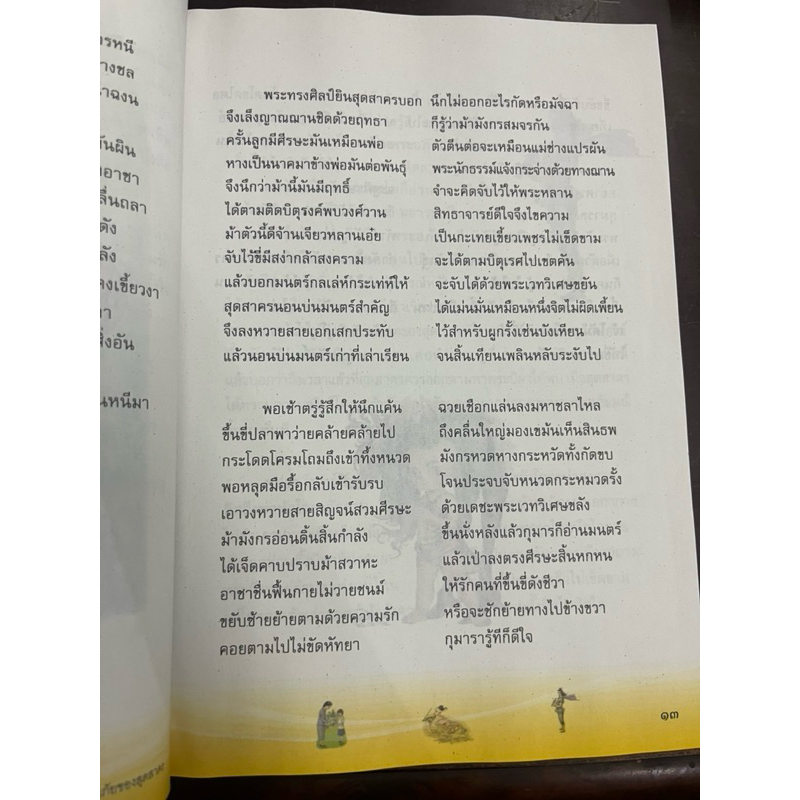 รหนี
างชล
าฉงน
ันผิน
อาชา
ลื่นถลา
ดัง
ลัง
คงเขี้ยวงา
า
สิ่งอัน
นหนีมา
พระทรงศิลป์ยินสุดสาครบอก นึกไม่ออกอะไรกัดหรือมัจฉา
จึงเล็งญาณฌานชิดด้วยฤทธา ก็รู้ว่าม้ามังกรสมจรกัน
ครั้นลูกมีศีรษะมันเหมือนพ่อ ตัวตีนต่อจะเหมือนแม่ช่างแปรผัน
หางเป็นนาคมาข้างพ่อมันต่อพันธุ์ พระนักธรรมแจ้งกระจ่างด้วยทางฌาน
จึงนึกว่าม้านี้มันมีฤทธิ์ จำจะคิดจับไว้ให้พระหลาน
ได้ตามติดบิตุรงค์พบวงศ์วาน สิทธาจารย์ดีใจจึงไขความ
ม้าตัวนี้ดีจ้านเจียวหลานเอ๋ย เป็นกะเทยเขี้ยวเพชรไม่เข็ดขาม
จับไว้ขี่มีสง่ากล้าสงคราม จะได้ตามบิตุเรศไปเขตคัน
แล้วบอกมนตร์กลเล่ห์กระเท่ห์ให้ จะจับได้ด้วยพระเวทวิเศษขยัน
สุดสาครนอนบ่นมนตร์สำคัญ ได้แม่นมั่นเหมือนหนึ่งจิตไม่ผิดเพี้ยน
จึงลงหวายสายเอกเสกประทับ ไว้สำหรับผูกรั้งเช่นบังเหียน
แล้วนอนบ่นมนตร์เก่าที่เล่าเรียน จนสิ้นเทียนเพลินหลับระงับไป
พอเช้าตรู่รู้สึกให้นึกแค้น ฉวยเชือกแล่นลงมหาชลาไหล
ขึ้นขี่ปลาพาว่ายคล้ายคล้ายไป ถึงคลื่นใหญ่มองเขม้นเห็นสินธพ
กระโดดโครมโถมถึงเข้าทึ้งหนวด มังกรหวดหางกระหวัดทั้งกัดขบ
พอหลุดมือรื้อกลับเข้ารับรบ โจนประจบจับหนวดกระหมวดรั้ง
เอาวงหวายสายสิญจน์สวมศีรษะ ด้วยเดชะพระเวทวิเศษขลัง
ม้ามังกรอ่อนดิ้นสิ้นกำลัง ขึ้นนั่งหลังแล้วกุมารก็อ่านมนตร์
ได้เจ็ดคาบปราบม้าสวาหะ แล้วเป่าลงตรงศีรษะสิ้นหกหน
อาชาชื่นฟื้นกายไม่วายชนม์ ให้รักคนที่ขึ้นขี่ดังชีวา
ขยับซ้ายย้ายตามด้วยความรัก หรือจะชักย้ายทางไปข้างขวา
คอยตามไปไม่ขัดหัทยา กุมารารู้ทีก็ดีใจ
๑๓
ภัยของสุดสาคร